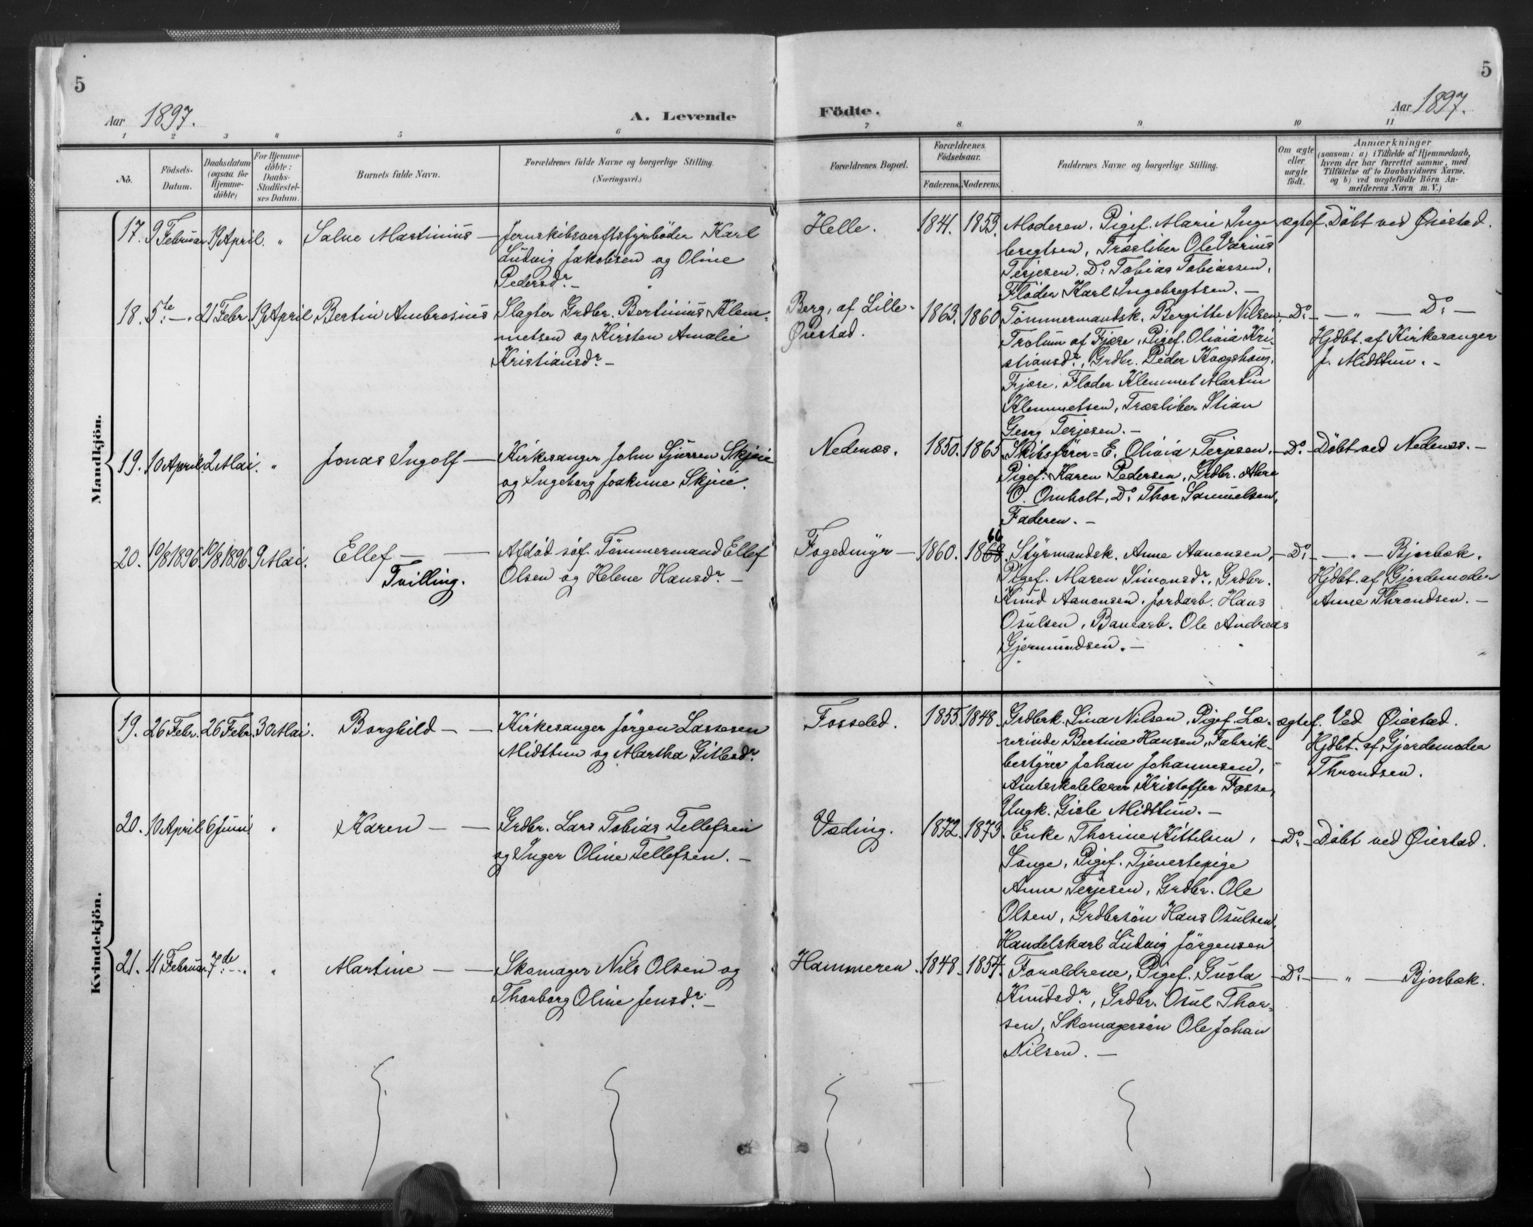 5
5
Aar 1897.
A. Levende
Födte.
Aar 1897.
1 2 3 4 5 6 7 8 9 10 11
No.
Födsels-
Datum.
Daabsdatum
(ogsaa for
Hjemme-
döbte)
For Hjemme-
döbte:
Daabs-
Stadfæstel-
ses Datum.
Barnets fulde Navn.
Forældrenes fulde Navne og borgerlige Stilling.
(Næringsvei.)
Forældrenes Bopæl.
Forældrenes
Födselsaar.
Faderens. Moderens.
Faddernes Navne og borgerlige Stilling.
Om ægte
eller
uægte
födt.
Anmærkninger
(saasom: a) i Tilfælde af Hjemmedaab,
hvem der har forrettet samme, med
Tilföielse af to Daabsvidners Navne.
og b) ved uegtefödte Börn An-
melderens Navn m. V.)
Mandkjön.
17. 9 Februar 19 April. " Salve Martinius —
Jernskibsverftsfyrböder Karl
Ludvig Jakobsen og Oline
Pedersdr. —
Helle. 1841. 1853.
Moderen. Pigef. Marie Inge
bregtsen, Træsliber Ole Værius
Terjesen. Do Tobias Tobiassen,
Fløder Karl Ingebregtsen. —
ægtef. Döbt ved Øiestad.
18. 5te — . 21 Febr. 19 April Bertin Ambrosius
Slagter Grdbr. Bertinius Klem-
metsen og Kirsten Amalie
Kristiansdr. —
Berg, af Lille-
Øiestad.
1863. 1860
Tömmermandsk. Bergitte Nilsen
Trolum af Fjære, Pigef. Olivia Kri-
stiansdr, Grdbr. Peder
Fjære. Fløder Klemmet Martin
Klemmetsen, Træsliber Stian
Georg Terjesen. —
Do. — " — Do. —
Hjdbt. af Kirkesanger
J. Midttun. -
19. 10 April 2 Mai. " Jonas Ingolf —
Kirkesanger John Sjursen Skjeie
og Ingeborg Joakime Skjeie.
Nedenæs. 1850. 1865
Skibsförer-E. Olivia Terjesen.
Pigef. Karen Pedersen, Grdbr. Akre
O. Omholt, Do Thor Samuelsen,
Faderen. —
Do. Döbt ved Nedenæs. —
20. 10/8 1896 10/8 1896. 9 Mai. Ellef —
Tvilling.
Afdöd søf. Tömmermand Ellef
Olsen og Helene Hansdr. —
Fogedmyr — 1860. 66
Styrmandsk. Anne Aanonsen,
Pigef. Maren Simonsdr, Grdbr.
Knud Aanonsen, Jordarb. Hans
Osulsen, Banearb. Ole Andreas
Gjermundsen. —
Do. — " — Bjorbæk.
Hjdbt. af Gjordemoder
Anne Throndsen. —
Kvindekjön.
19. 26 Febr. 26 Febr. 30 Mai. Borghild — —
Kirkesanger Jörgen Lassesen
Midttun og Martha Gitlesdr.
Fosseled. 1855. 1848.
Grdbrk. Lina Nilsen, Pigef. Læ-
rerinde Bertine Hansen, Fabrik-
bestyrer Johan Johannesen,
Amtsskolelærer Kristoffer Fosse,
Ungk. Gisle Midttun. —
ægtef. Ved Øiestad.
Hjdbt. af Gjordemoder
Throndsen.
20. 10 April 6 Juni " Karen — —
Grdbr. Lars Tobias Tellefsen
og Inger Oline Tellefsen. —
Væding. 1872. 1873.
Enke Thorine Kittelsen,
Longe, Pigef. Tjenestepige
Anne Terjesen, Grdbr. Ole
Olsen, Grdbrsön Hans Osulsen,
Handelskarl Ludvig Jörgensen
Do. — Döbt ved Øiestad.
21. 11 Februar 7de — . " Martine — —
Skomager Nils Olsen og
Thorborg Oline Jensdr. —
Hammeren. 1848. 1857.
Foræeldrene, Pigef. Gusta
Knudsdr, Grdbr. Osul Thor-
sen, Skomagersön Ole Johan
Nilsen. —
Do — " — Bjorbæk.